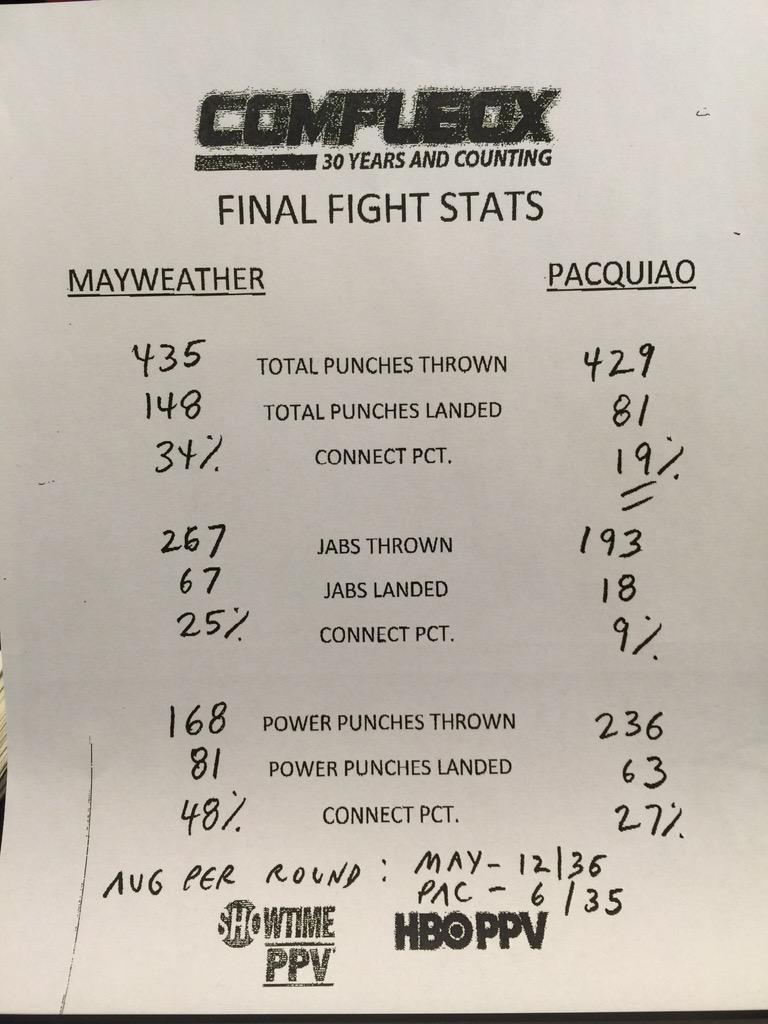 COMPUBOX
30 YEARS AND COUNTING
FINAL FIGHT STATS
MAYWEATHER PACQUIAO
435 TOTAL PUNCHES THROWN 429
148 TOTAL PUNCHES LANDED 81
34% CONNECT PCT. 19%
267 JABS THROWN 193
67 JABS LANDED 18
25% CONNECT PCT. 9%
168 POWER PUNCHES THROWN 236
81 POWER PUNCHES LANDED 63
48% CONNECT PCT. 27%
AVG PER ROUND: MAY - 12/36
PAC - 6/35
SHOWTIME PPV HBO PPV